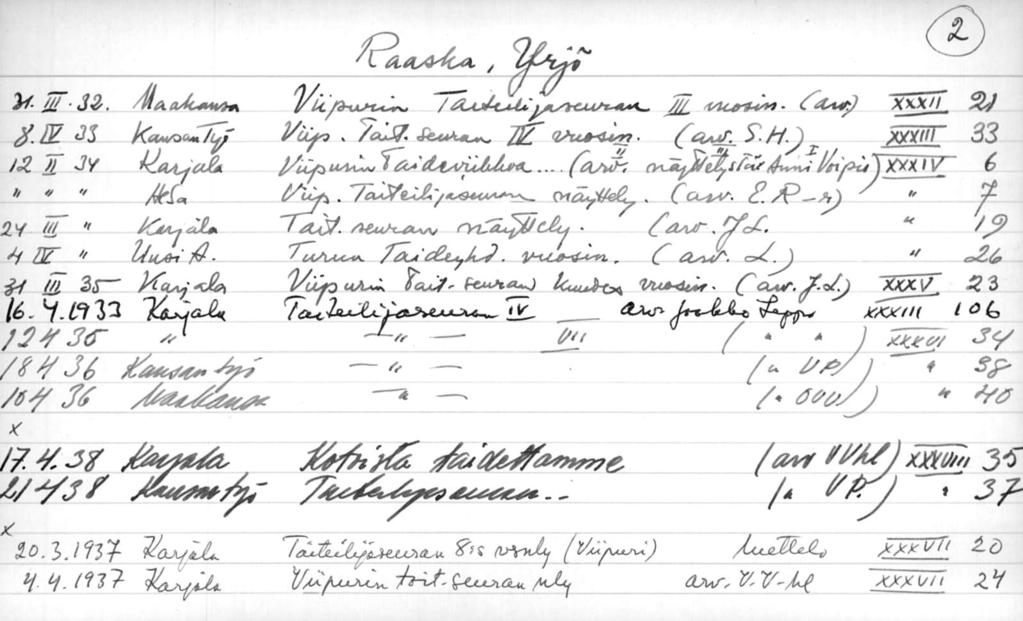 2
Raaska, Yrjö
31. III. 32. Maakansa Viipurin Taiteilijaseuran III vuosin. (arv.) XXXII 21
8. IV 33 Kansan Työ Viip. Tait. seuran IV vuosin. (arv. S.H.) XXXIII 33
12 II 34 Karjala Viipurin Taideviikkoa... (arv. näyttelystä Anni Voipio) XXXIV 6
" " " HSa Viip. Taiteilijaseuran näyttely. (arv. E. R-r) " 7
24 III " Karjala Tait. seuran näyttely. (arv. J L. " 19
4 IV " Uusi A. Turun Taideyhd. vuosin. (arv. L.) " 26
31 III 35 Karjala Viipurin Tait. seuran kuudes vuosin. (arv. J.L.) XXXV 23
16. 4. 1933 Karjala Taiteilijaseuran IV arv. Jaakko Leppo XXXIII 106
12 4 36 " — " — VII ( " " ) XXXVI 34
18 4 36 Kansan työ — " — (" VP) " 38
10 4 36 Maakansa — " — (" ) " 40
x
17. 4. 38 Karjala Kotoista taidettamme (arv VVhl) XXXVIII 35
21 4 38 Kansan työ Taiteilijaseuran... (" VP.) " 37
x
20. 3. 1937 Karjala Taiteilijaseuran 8:s vsnly (Viipuri) luettelo XXXVII 20
4. 4. 1937 Karjala Viipurin tait. seuran nly arv. V. V-hl XXXVII 24